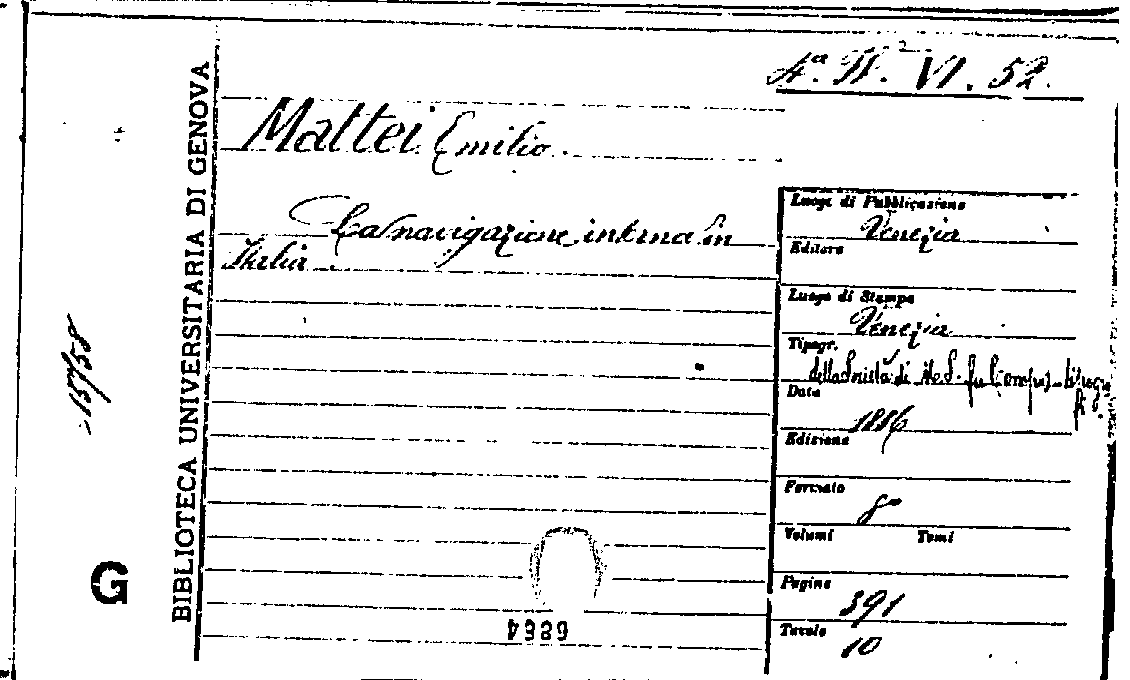 4ª. II. VI. 52.
Mattei Emilio.
La navigazione interna in
Italia
Luogo di Pubblicazione
Venezia
Editore
Luogo di Stampa
Venezia
Tipogr.
della Società di M. S. fra
Data
1886
Edizione
Formato
8°
Volumi Tomi
Pagine
391
Tavole
10
BIBLIOTECA UNIVERSITARIA DI GENOVA
G